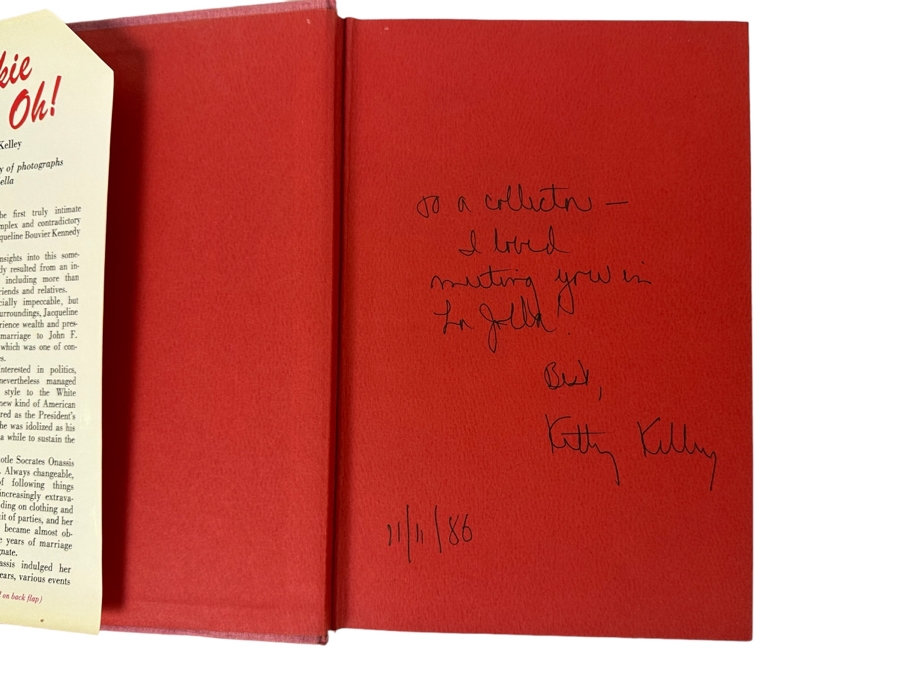 kie
Oh!
Kelley
y of photographs
ella
he first truly intimate
mplex and contradictory
queline Bouvier Kennedy
nsights into this some-
dly resulted from an in-
including more than
riends and relatives.
cially impeccable, but
urroundings, Jacqueline
rience wealth and pres-
marriage to John F.
which was one of con-
s.
nterested in politics,
nevertheless managed
style to the White
new kind of American
red as the President's
he was idolized as his
a while to sustain the
otle Socrates Onassis
. Always changeable,
of following things
increasingly extrava-
ding on clothing and
it of parties, and her
became almost ob-
e years of marriage
nate.
assis indulged her
ears, various events
d on back flap)
To a collector —
I loved
meeting you in
La Jolla!
Best,
Kitty Kelley
11/11/86